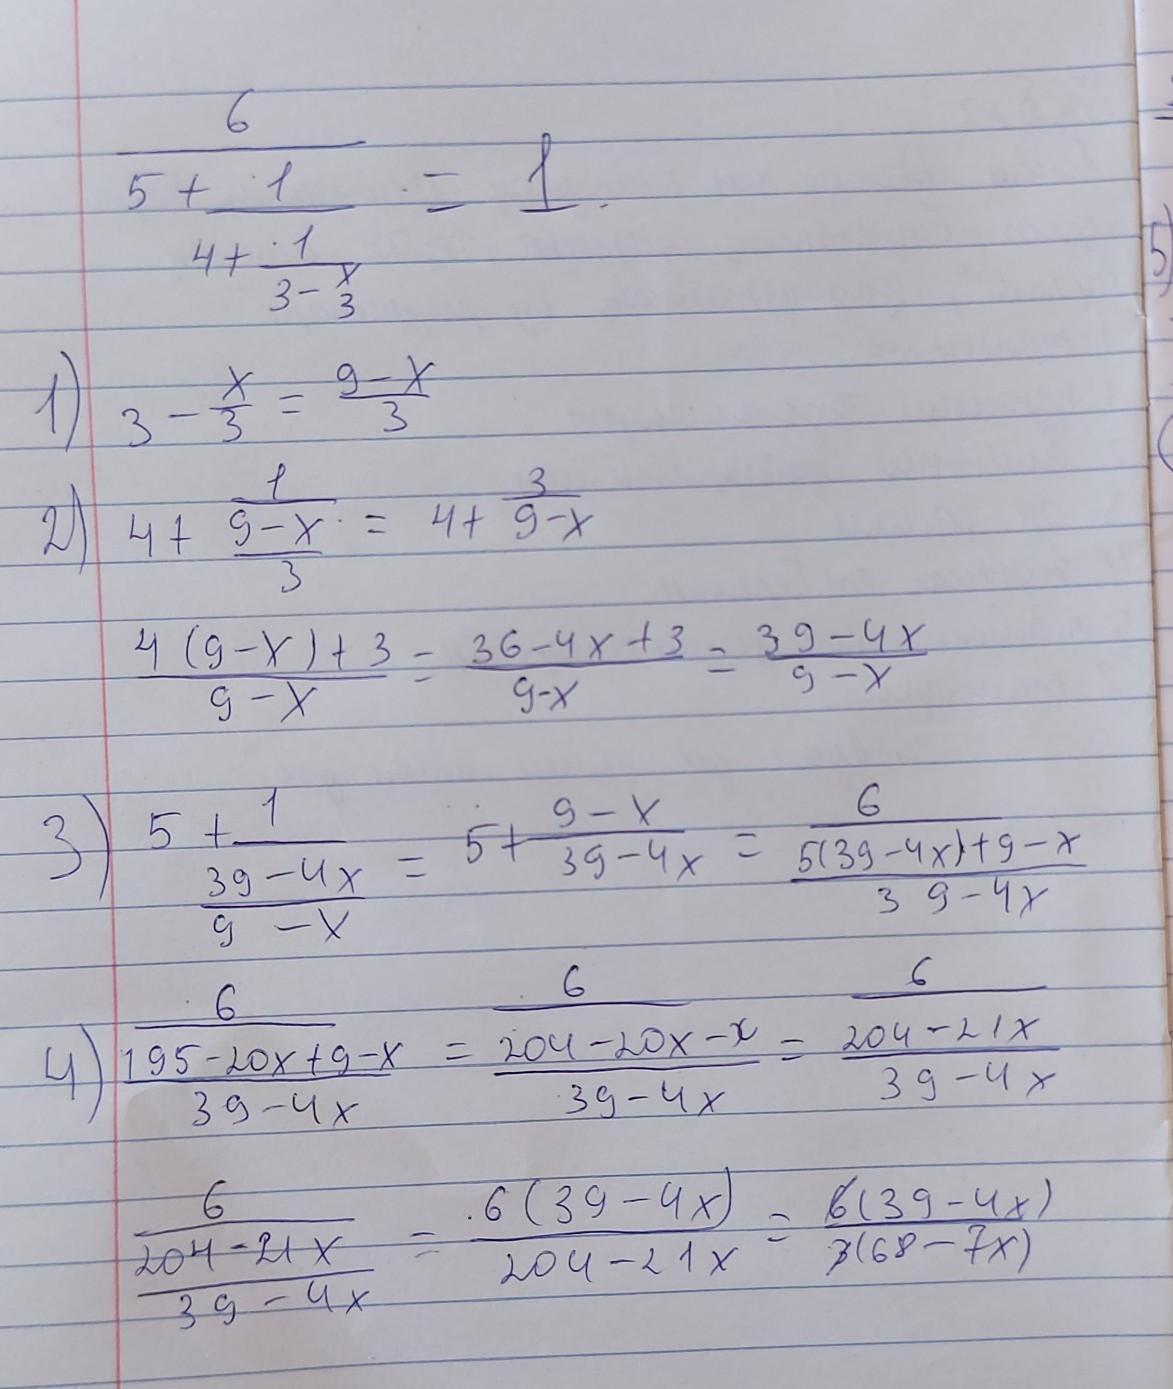 6
5 + 1 = 1
4 + 1
3 - x
3
1) 3 - x/3 = 9 - x/3
2) 4 + 1/(9 - x)/3 = 4 + 3/9 - x
4(9 - x) + 3/9 - x = 36 - 4x + 3/9 - x = 39 - 4x/9 - x
3) 5 + 1/(39 - 4x)/(9 - x) = 5 + 9 - x/39 - 4x = 6/(5(39 - 4x) + 9 - x)/(39 - 4x)
4) 6/(195 - 20x + 9 - x)/(39 - 4x) = 6/(204 - 20x - x)/(39 - 4x) = 6/(204 - 21x)/(39 - 4x)
6/(204 - 21x)/(39 - 4x) = 6(39 - 4x)/204 - 21x = 6(39 - 4x)/3(68 - 7x)
5)